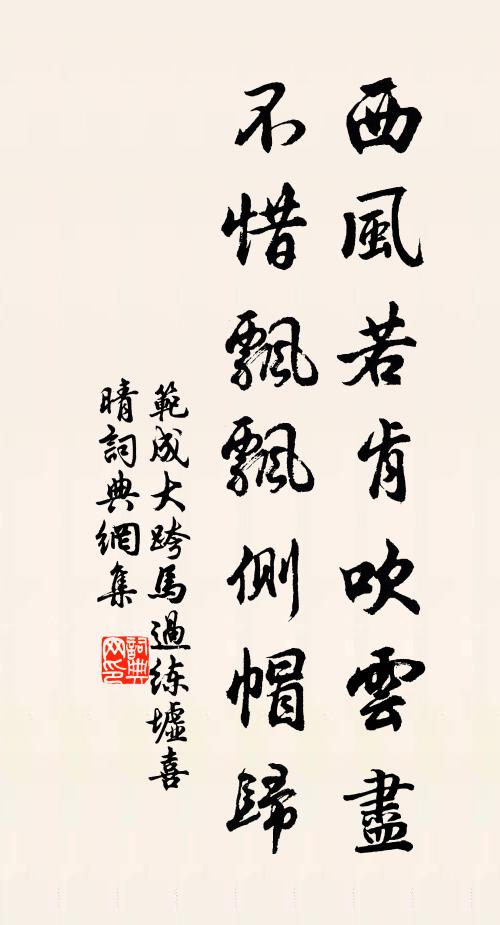 西風若肯吹雲盡
不惜飄飄側帽歸
範成大跨馬過練墟喜
晴詞典網集
詞典
网印